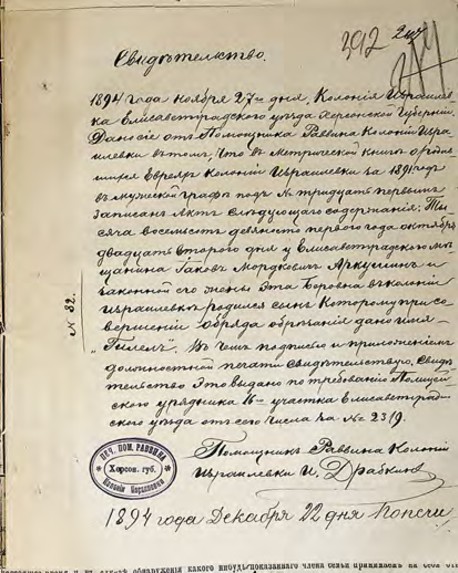 392
Свидѣтельство.
1894 года ноября 27го дня, Колонія Израилев-
ка Елисаветградскаго уѣзда Херсонской Губерніи.
Дано сіе отъ Помощника Раввина Колоніи Изра-
илевки въ томъ, что въ Метрической книгѣ о родив-
шихся Евреяхъ Колоніи Израилевки за 1891 годъ
въ мужеской графѣ подъ № тридцать первымъ
записанъ Актъ слѣдующаго содержанія: Ты-
сяча восемьсотъ девяносто перваго года октября
двадцать втораго дня у Елисаветградскаго мѣ-
щанина Іаковъ Мордковичъ Аркушинъ и
законной его жены Эта Боровна въ колоніи
Израилевкѣ родился сынъ которому при со-
вершеніи обряда обрѣзанія дано имя
"Гилель". Въ чемъ подписью и приложеніемъ
должностной печати свидѣтельствую. Свидѣ-
тельство это выдано по требованію Полицей-
скаго урядника 16го участка Елисаветград-
скаго уѣзда отъ сего числа за № 2319.
Помощникъ Раввина Колоніи
Израилевки И. Драбкинъ
1894 года Декабря 22 дня
№ 32.
ПЕЧ. ПОМ. РАВВИНА
Херсон. губ.
обнаруженія какого нибудь показаннаго члена семьи